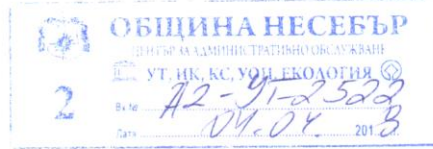 ОБЩИНА НЕСЕБЪР
ЦЕНТЪР ЗА АДМИНИСТРАТИВНО ОБСЛУЖВАНЕ
УТ, ИК, КС, УОЦ, ЕКОЛОГИЯ
2
Вх № А2-УТ-2522
Дата 01.04. 2013